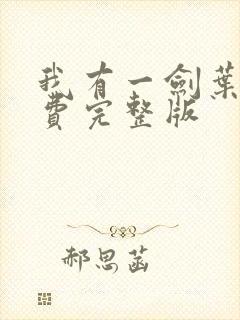 我有一劍葉
費完整版
郝思菡